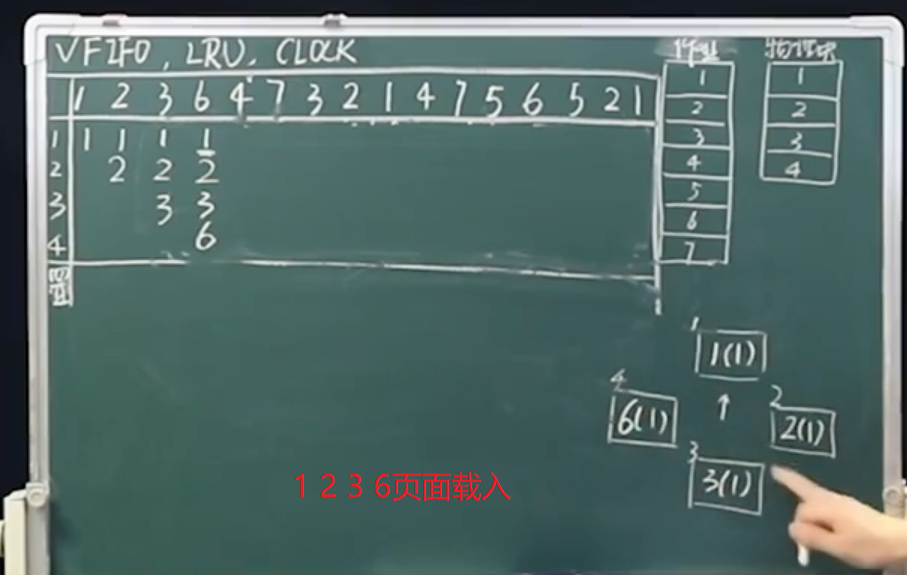 √FIFO, LRU, CLOCK
1 2 3 6 4 7 3 2 1 4 7 5 6 5 2 1
1 1 1 1 1
2 2 2 2
3 3 3
4 6
置
作业
1
2
3
4
5
6
7
物理块
1
2
3
4
1
1(1)
4
6(1)
↑
2
2(1)
3
3(1)
1 2 3 6页面载入